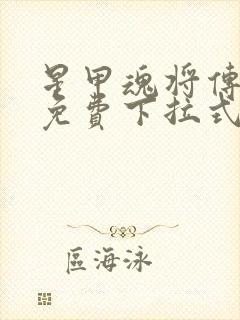 星甲魂将傳
免費下拉式
區海泳